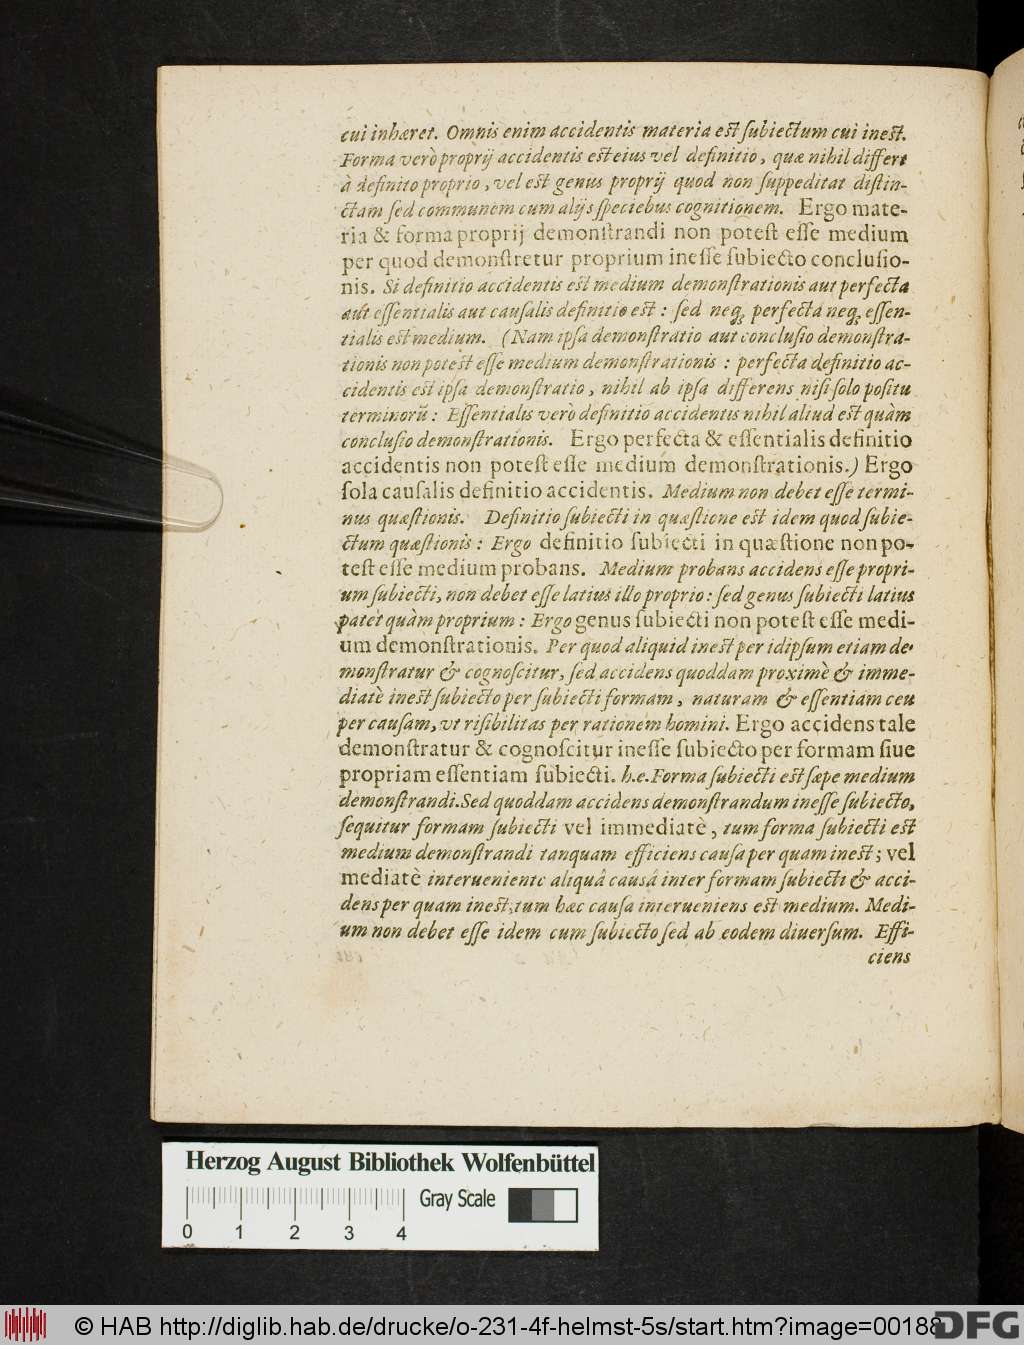 cui inhæret. Omnis enim accidentis materia est ſubiectum cui inest.
Forma verò proprij accidentis est eius vel definitio, quæ nihil differt
à definito proprio, vel est genus proprij quod non ſuppeditat diſtin-
ctam ſed communem cum alijs ſpeciebus cognitionem. Ergo mate-
ria & forma proprij demonſtrandi non poteſt eſſe medium
per quod demonſtretur proprium ineſſe ſubiecto concluſio-
nis. Si definitio accidentis est medium demonſtrationis aut perfecta
aut eſſentialis aut cauſalis definitio est: ſed neq; perfecta neq; eſſen-
tialis est medium. (Nam ipſa demonſtratio aut concluſio demonſtra-
tionis non potest eſſe medium demonſtrationis: perfecta definitio ac-
cidentis est ipſa demonſtratio, nihil ab ipſa differens niſi ſolo poſitu
terminorū: Eſſentialis verò definitio accidentis nihil aliud est quàm
concluſio demonſtrationis. Ergo perfecta & eſſentialis definitio
accidentis non poteſt eſſe medium demonſtrationis.) Ergo
ſola cauſalis definitio accidentis. Medium non debet eſſe termi-
nus quæſtionis. Definitio ſubiecti in quæſtione est idem quod ſubie-
ctum quæſtionis: Ergo definitio ſubiecti in quæſtione non po-
teſt eſſe medium probans. Medium probans accidens eſſe propri-
um ſubiecti, non debet eſſe latius illo proprio: ſed genus ſubiecti latius
patet quàm proprium: Ergo genus ſubiecti non poteſt eſſe medi-
um demonſtrationis. Per quod aliquid inest per id ipſum etiam de-
monſtratur & cognoſcitur, ſed accidens quoddam proximè & imme-
diatè inest ſubiecto per ſubiecti formam, naturam & eſſentiam ceu
per cauſam, vt riſibilitas per rationem homini. Ergo accidens tale
demonſtratur & cognoſcitur ineſſe ſubiecto per formam ſiue
propriam eſſentiam ſubiecti. h.e. Forma ſubiecti est ſæpe medium
demonſtrandi. Sed quoddam accidens demonſtrandum ineſſe ſubiecto,
ſequitur formam ſubiecti vel immediatè, tum forma ſubiecti est
medium demonſtrandi tanquam efficiens cauſa per quam inest; vel
mediatè interueniente aliquâ causâ inter formam ſubiecti & acci-
dens per quam inest, tum hæc cauſa interueniens est medium. Medi-
um non debet eſſe idem cum ſubiecto ſed ab eodem diuerſum. Effi-
ciens
Herzog August Bibliothek Wolfenbüttel
Gray Scale
0 1 2 3 4
© HAB http://diglib.hab.de/drucke/o-231-4f-helmst-5s/start.htm?image=00188
DFG